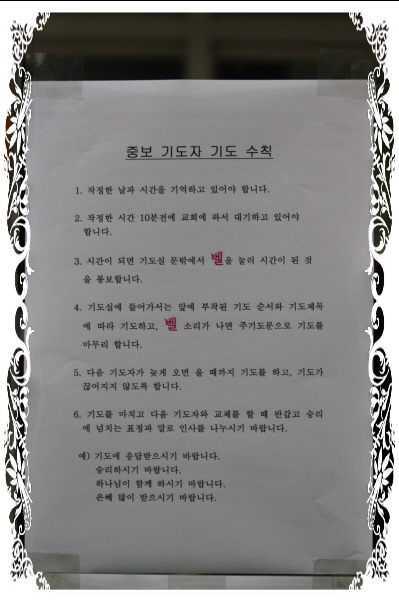 중보 기도자 기도 수칙
1. 작정한 날과 시간을 기억하고 있어야 합니다.
2. 작정한 시간 10분전에 교회에 와서 대기하고 있어야
합니다.
3. 시간이 되면 기도실 문밖에서 벨을 눌러 시간이 된 것
을 통보합니다.
4. 기도실에 들어가서는 앞에 부착된 기도 순서와 기도제목
에 따라 기도하고, 벨 소리가 나면 주기도문으로 기도를
마무리 합니다.
5. 다음 기도자가 늦게 오면 올 때까지 기도를 하고, 기도가
끊어지지 않도록 합니다.
6. 기도를 마치고 다음 기도자와 교체를 할 때 반갑고 승리
에 넘치는 표정과 말로 인사를 나누시기 바랍니다.
예) 기도에 응답받으시기 바랍니다.
승리하시기 바랍니다.
하나님이 함께 하시기 바랍니다.
은혜 많이 받으시기 바랍니다.